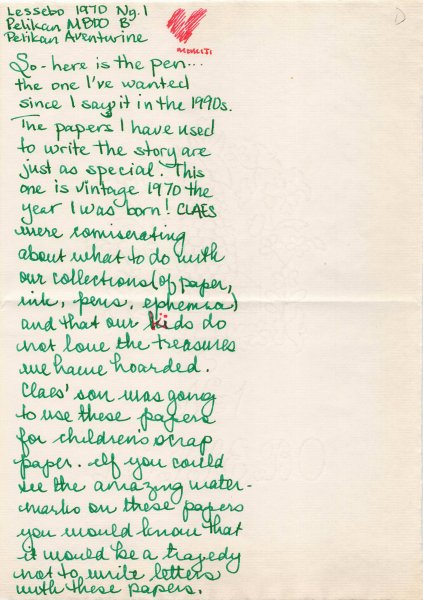 Lessebo 1970 Ng. 1
Pelikan M800 B
Pelikan Aventurine
So - here is the pen...
the one I've wanted
since I say it in the 1990s.
The papers I have used
to write the story are
just as special. This
one is vintage 1970 the
year I was born! CLAES
were comiserating
about what to do with
our collections (of paper,
ink, pens, ephemera)
and that our kids do
not love the treasures
we have hoarded.
Claes' son was going
to use these papers
for children's scrap
paper. If you could
see the amazing water-
marks on these papers
you would know that
it would be a tragedy
not to write letters
with these papers.